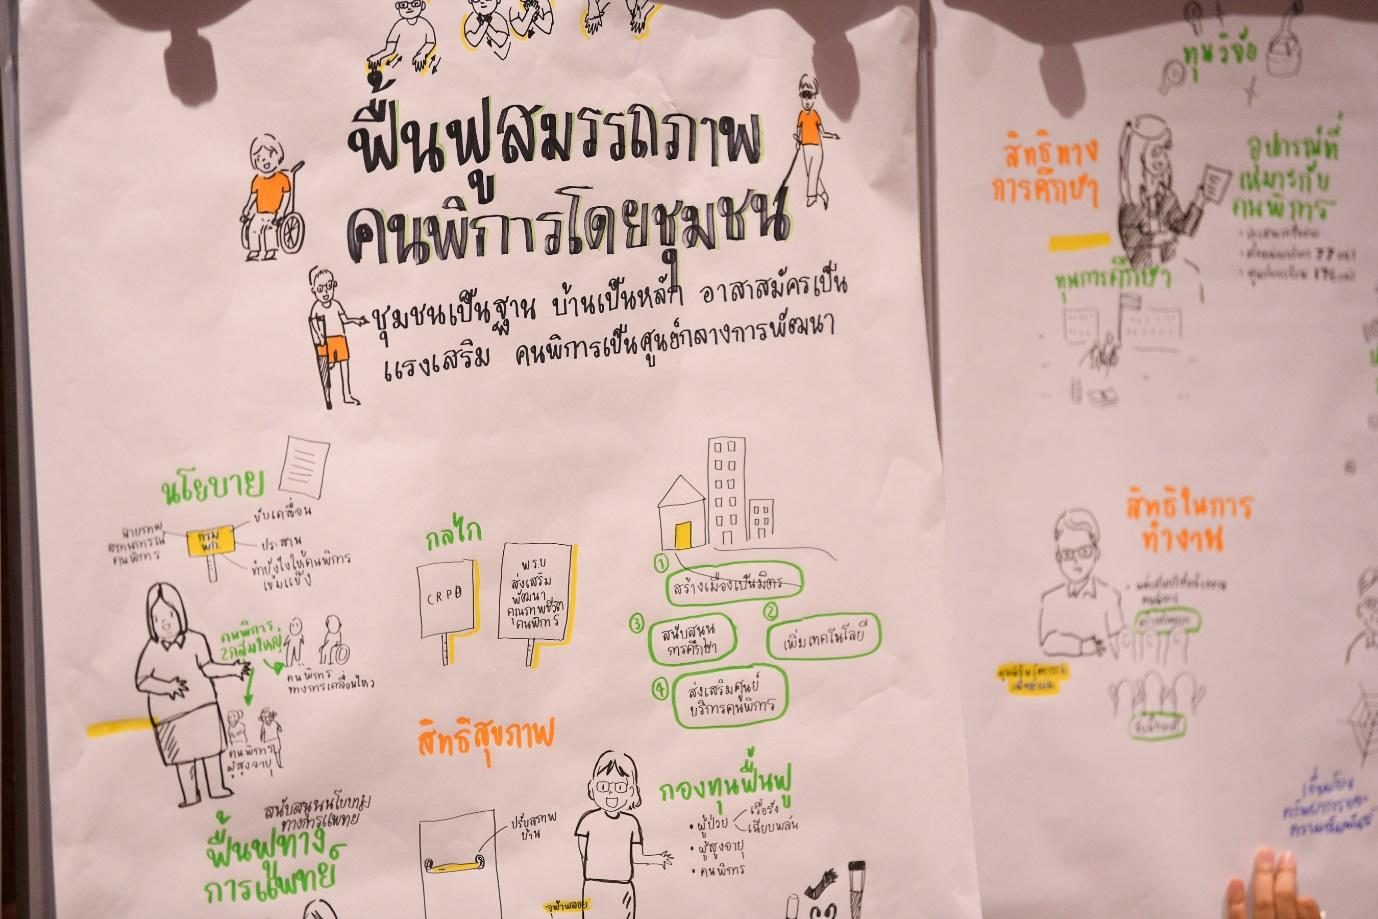 ฟื้นฟูสมรรถภาพ
คนพิการโดยชุมชน
ชุมชนเป็นฐาน บ้านเป็นหลัก อาสาสมัครเป็น
แรงเสริม คนพิการเป็นศูนย์กลางการพัฒนา
นโยบาย
ขับเคลื่อน
กรม
พก.
ประสาน
ทำยังไงให้คนพิการ
เข้มแข็ง
สถานการณ์
คนพิการ
คนพิการ
2กลุ่มใหญ่
คนพิการ
ทางการเคลื่อนไหว
คนพิการ
ผู้สูงอายุ
กลไก
CRPD
พ.ร.บ
ส่งเสริม
พัฒนา
คุณภาพชีวิต
คนพิการ
1
สร้างเมืองเป็นมิตร
2
เพิ่มเทคโนโลยี
3
สนับสนุน
การศึกษา
4
ส่งเสริมศูนย์
บริการคนพิการ
สนับสนุนนโยบาย
ทางการแพทย์
ฟื้นฟูทาง
การแพทย์
สิทธิสุขภาพ
ปรับสภาพ
บ้าน
กองทุนฟื้นฟู
• ผู้ป่วย
เรื้อรัง
เฉียบพลัน
• ผู้สูงอายุ
• คนพิการ
ทุนวิจัย
สิทธิทาง
การศึกษา
ทุนการศึกษา
อุปกรณ์ที่
เหมาะกับ
คนพิการ
สิทธิในการ
ทำงาน